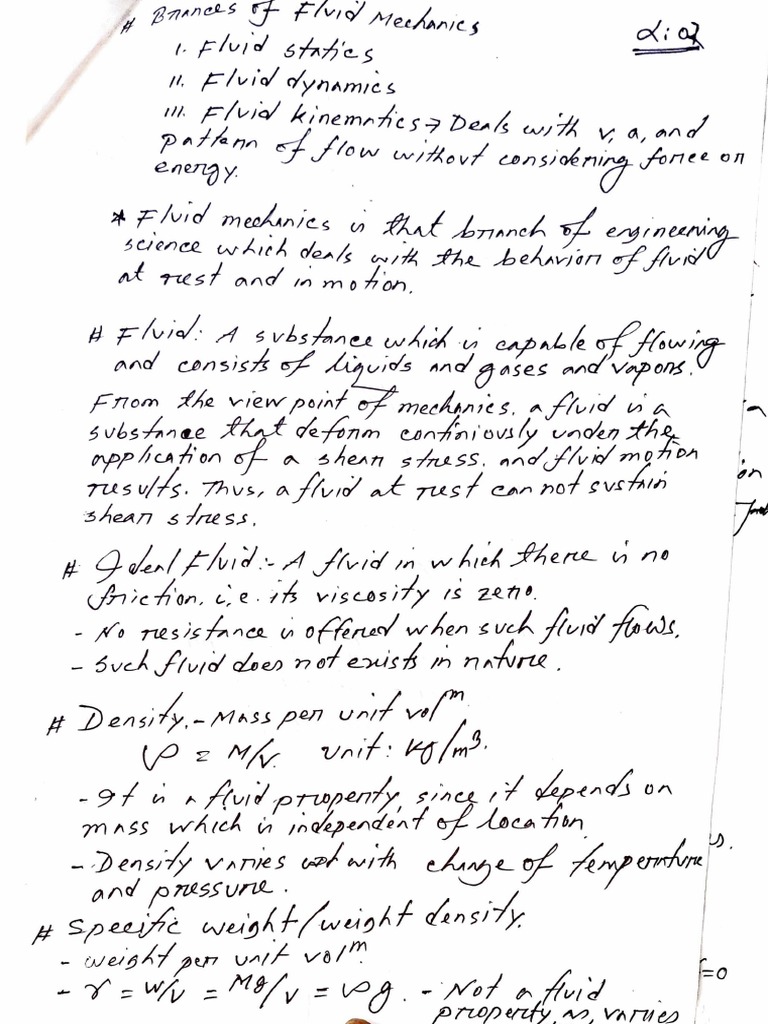 # Brances of Fluid Mechanics
L:02
i. Fluid statics
ii. Fluid dynamics
iii. Fluid kinematics → Deals with v, a, and
pattern of flow without considering force or
energy.
* Fluid mechanics is that branch of engineering
science which deals with the behavior of fluid
at rest and in motion.
# Fluid: A substance which is capable of flowing
and consists of liquids and gases and vapors.
From the view point of mechanics, a fluid is a
substance that deform continiously under the
application of a shear stress, and fluid motion
results. Thus, a fluid at rest can not sustain
shear stress.
# Ideal Fluid:- A fluid in which there is no
friction, i,e. its viscosity is zero.
- No resistance is offered when such fluid flows.
- Such fluid does not exists in nature.
# Density.- Mass per unit volm
ρ = M/v. unit: kg/m³.
- It is a fluid property, since it depends on
mass which is independent of location
- Density varies with change of temperature
and pressure.
# Specific weight/weight density.
- weight per unit volm
- γ = W/v = Mg/v = ρg. - Not a fluid
property, as, varies
on
s.
=0